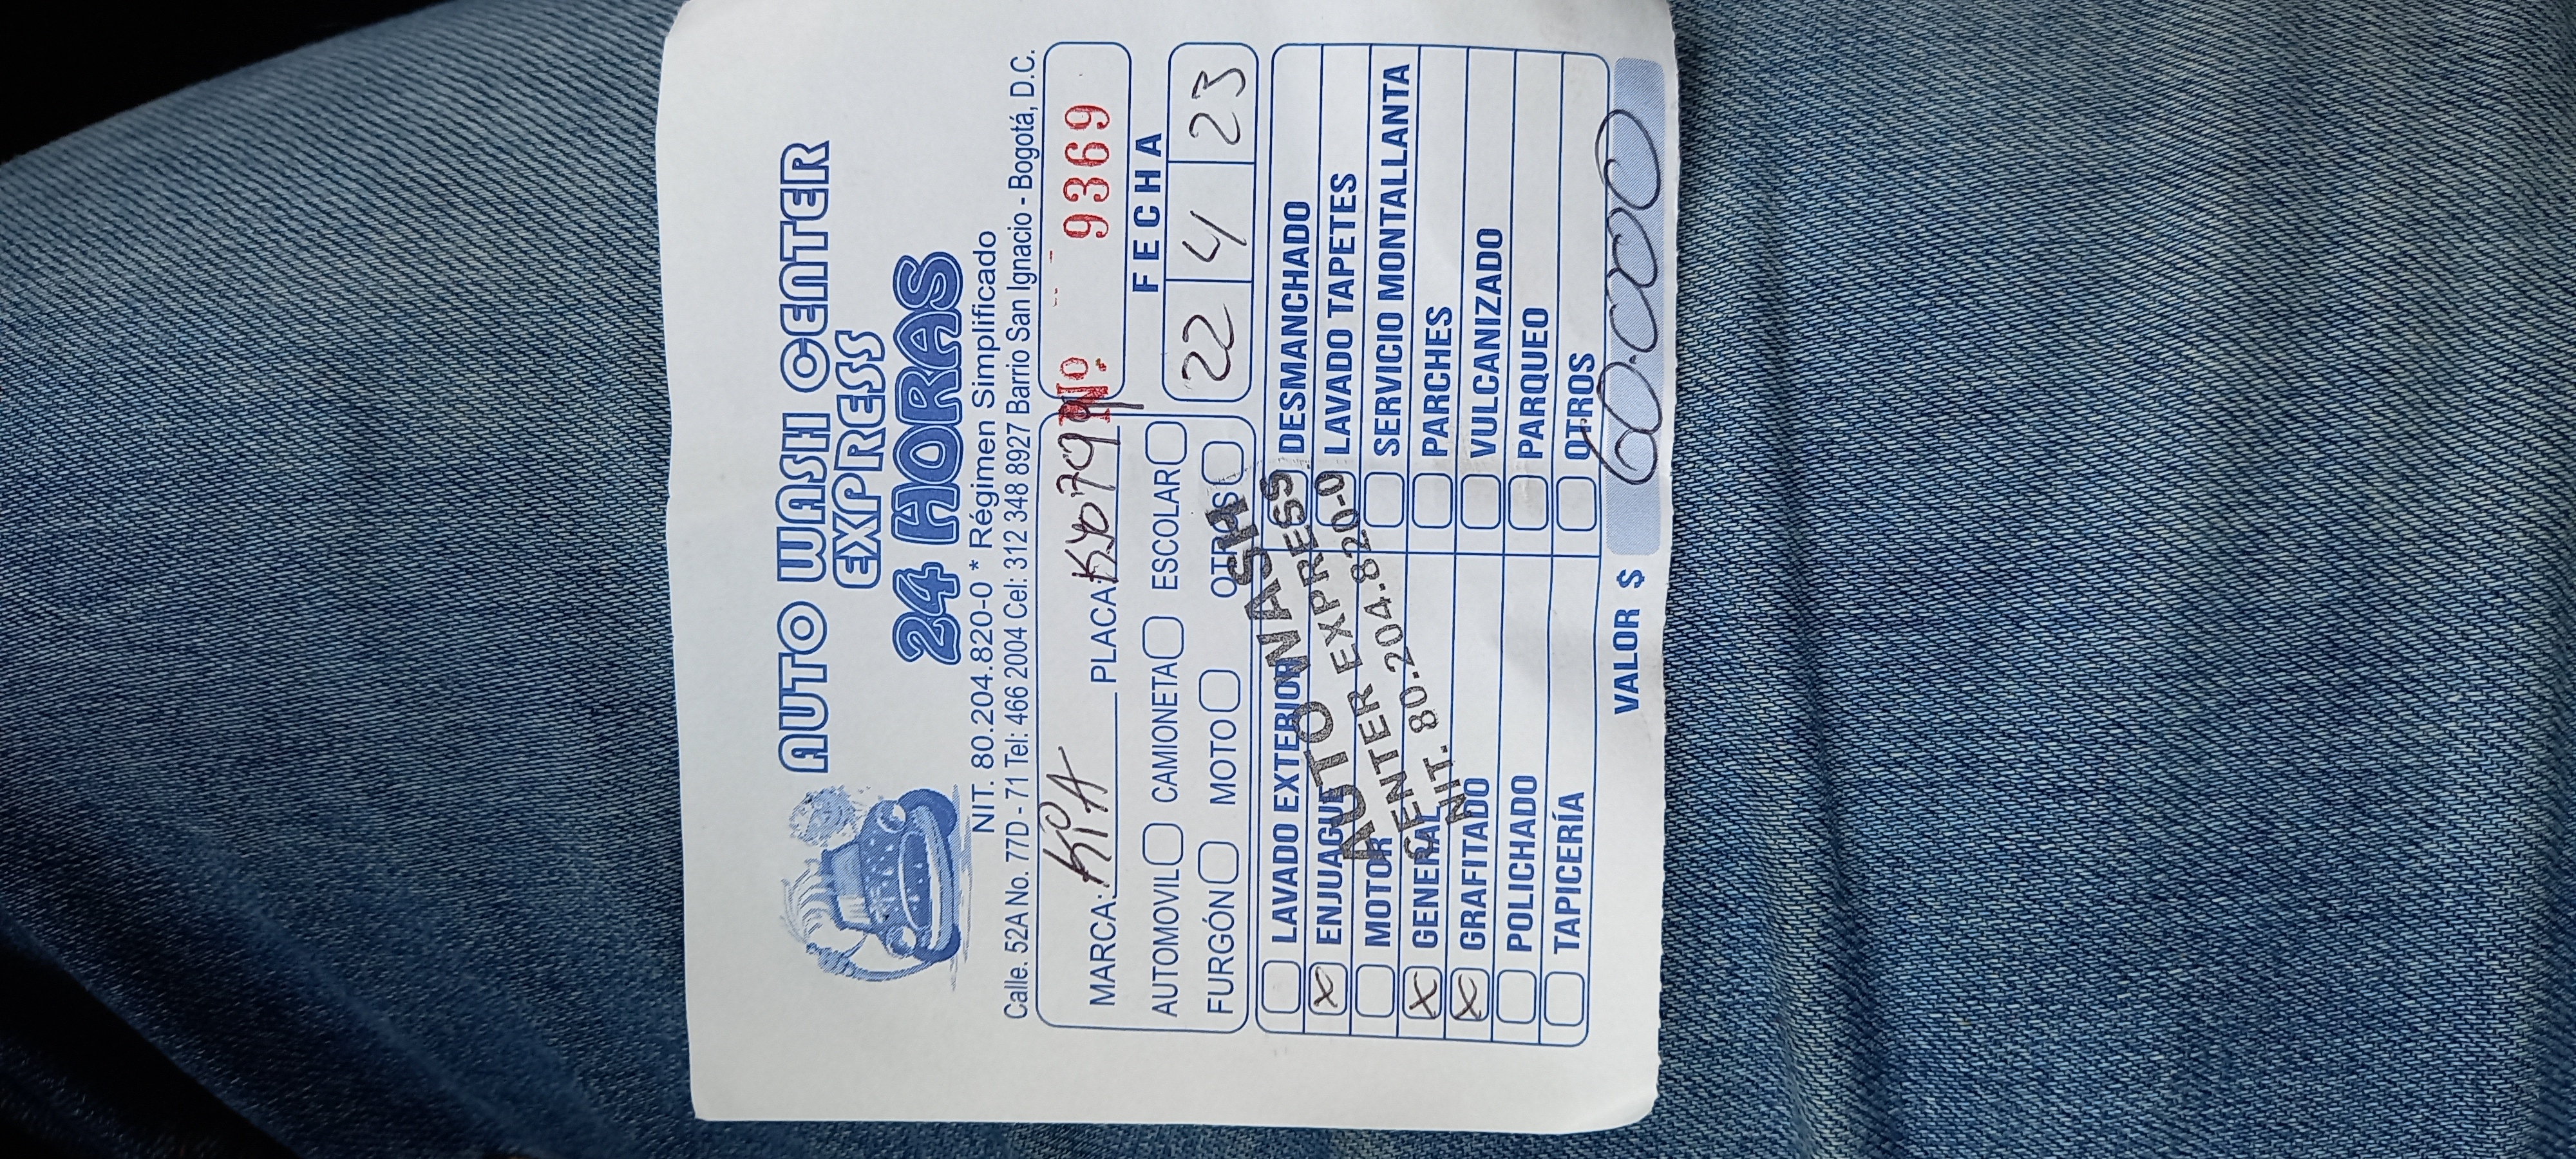 AUTO WASH CENTER
EXPRESS
24 HORAS
NIT. 80.204.820-0 * Régimen Simplificado
Calle. 52A No. 77D - 71 Tel: 466 2004 Cel: 312 348 8927 Barrio San Ignacio - Bogotá, D.C.
MARCA: KIA PLACA
No. 9369
AUTOMOVIL CAMIONETA ESCOLAR
FURGÓN MOTO OTROS
FECHA
22 4 23
LAVADO EXTERIOR DESMANCHADO
X ENJUAGUE LAVADO TAPETES
MOTOR SERVICIO MONTALLANTA
X GENERAL PARCHES
X GRAFITADO VULCANIZADO
POLICHADO PARQUEO
TAPICERÍA OTROS
AUTO WASH
CENTER EXPRESS
NIT. 80.204.820-0
VALOR $ 60.000